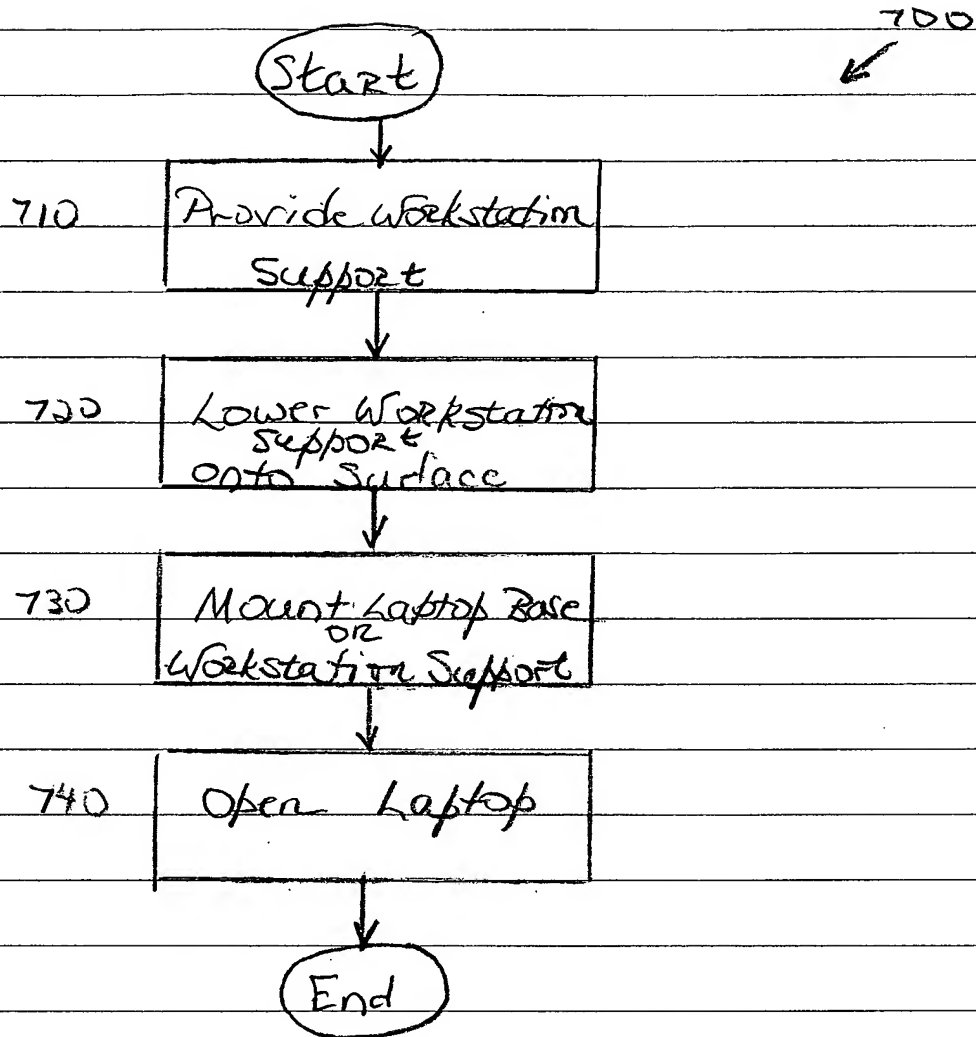 700
Start
710
Provide Workstation
Support
720
Lower Workstation
Support
onto Surface
730
Mount Laptop Base
OR
Workstation Support
740
Open Laptop
End